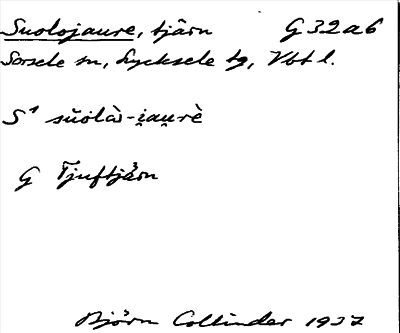 Suolojaure, tjärn G 32 a 6
Sorsele sn, Lycksele tg, Vbt l.
S¹ sŭolà-i̯au̯rè
G Tjuftjärn
Björn Collinder 1937